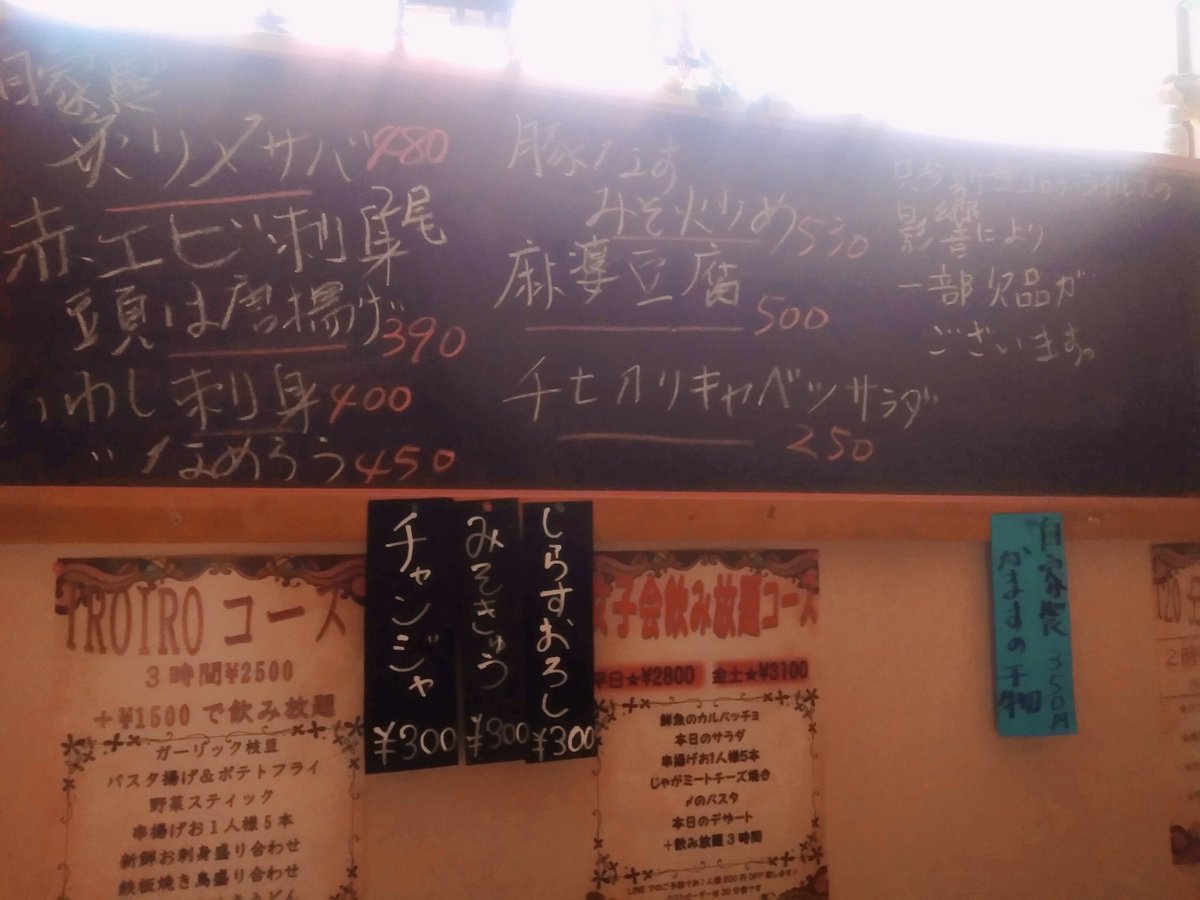 自家製
炙りメサバ480
赤エビ刺身尾
頭は唐揚げ390
いわし刺身400
〃なめろう450
豚なす
みそ炒め530
麻婆豆腐
500
チヒカリキャベツサラダ
250
影響により
一部欠品が
ございます。
チャンジャ
¥300
みそきゅう
¥300
しらすおろし
¥300
自家製
かますの干物
350円
IROIROコース
3時間¥2500
+¥1500で飲み放題
ガーリック枝豆
パスタ揚げ&ポテトフライ
野菜スティック
串揚げお1人様5本
新鮮お刺身盛り合わせ
鉄板焼き鳥盛り合わせ
女子会飲み放題コース
平日★¥2800 金土★¥3100
鮮魚のカルパッチョ
本日のサラダ
串揚げお1人様5本
じゃがミートチーズ焼き
〆のパスタ
本日のデザート
+飲み放題3時間